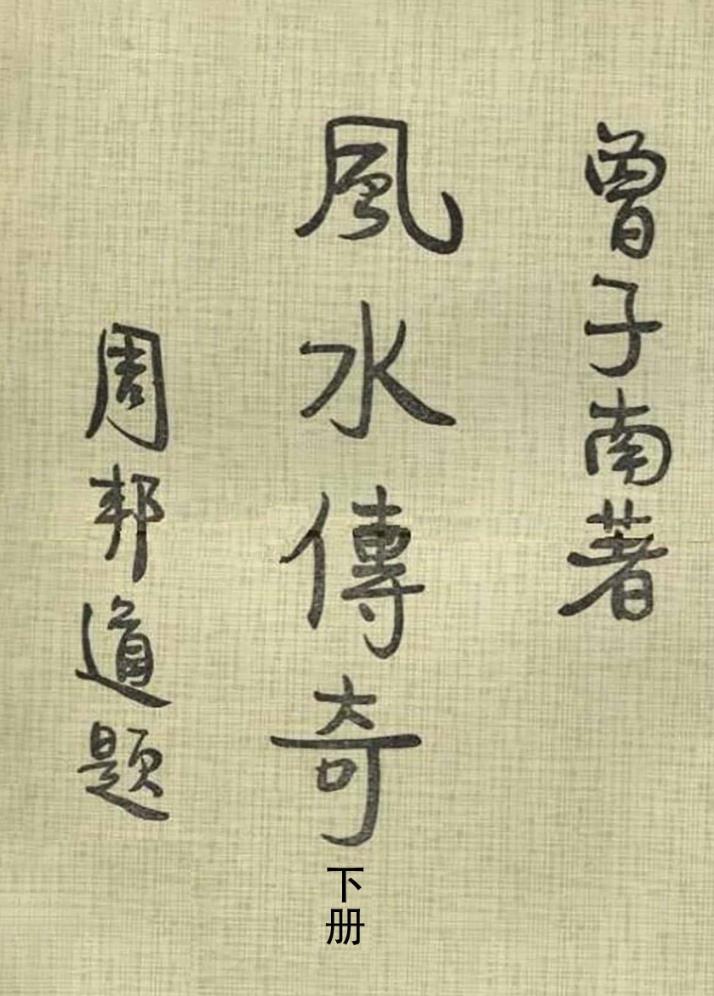 曾子南著
風水傳奇
下册
周邦道题